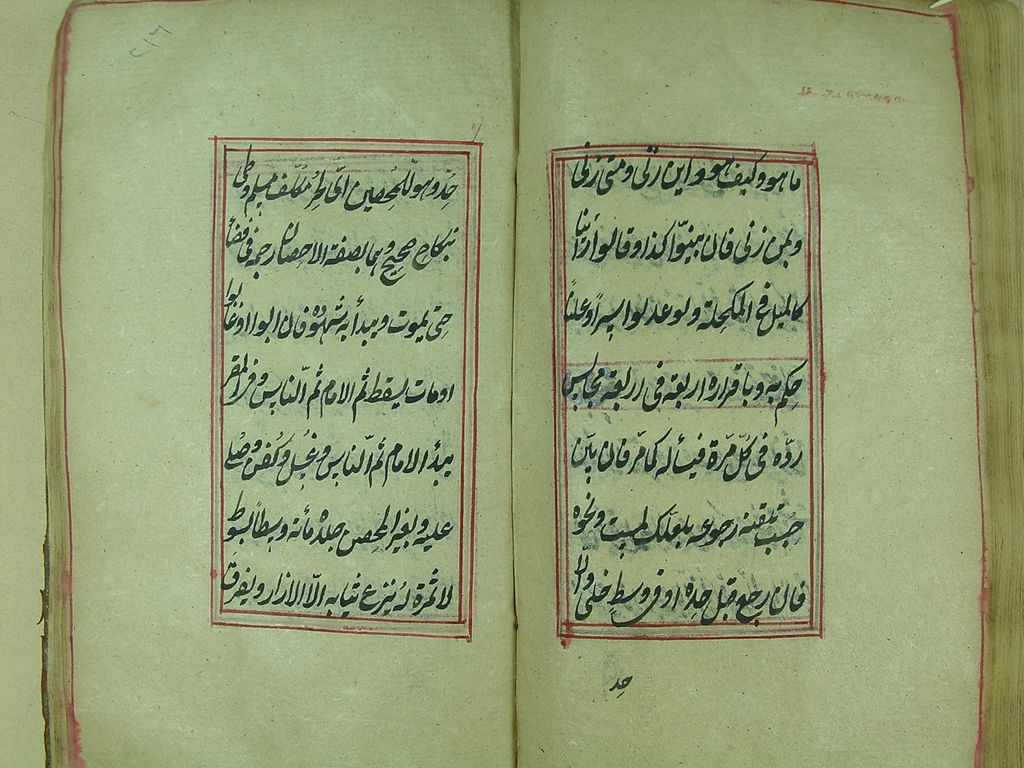 ما هو وكيف هو واين زنى ومتى زنى
وبمن زنى فان بينوا كذا وقالوا رأينا
كالميل فى المكحلة وعدلوا سرا وعلنا
حكم به وباقراره اربعة فى اربعة مجالس
رده فى كل مرة فيسأله كما مر فان بين
حُب تلقينه رجوعه بلعلك لمست ونحوه
فان رجع قبل حده او فى وسطه خلى والا
حد
٢١٦
حُدّ وهو للمحصن اى لحر مكلف مسلم وطى
بنكاح صحيح وهما بصفة الاحصان رجمه فى فضاء
حتى يموت ويبدأ به شهوده فان ابوا او غابوا
او مات يسقط ثم الامام ثم الناس وفى المقر
يبدأ الامام ثم الناس وغسل وكفن وصلى
عليه ولغير المحصن جلده مائة وسطا بسوط
لا ثمرة له ينزع ثيابه الّا الازار ويفرق